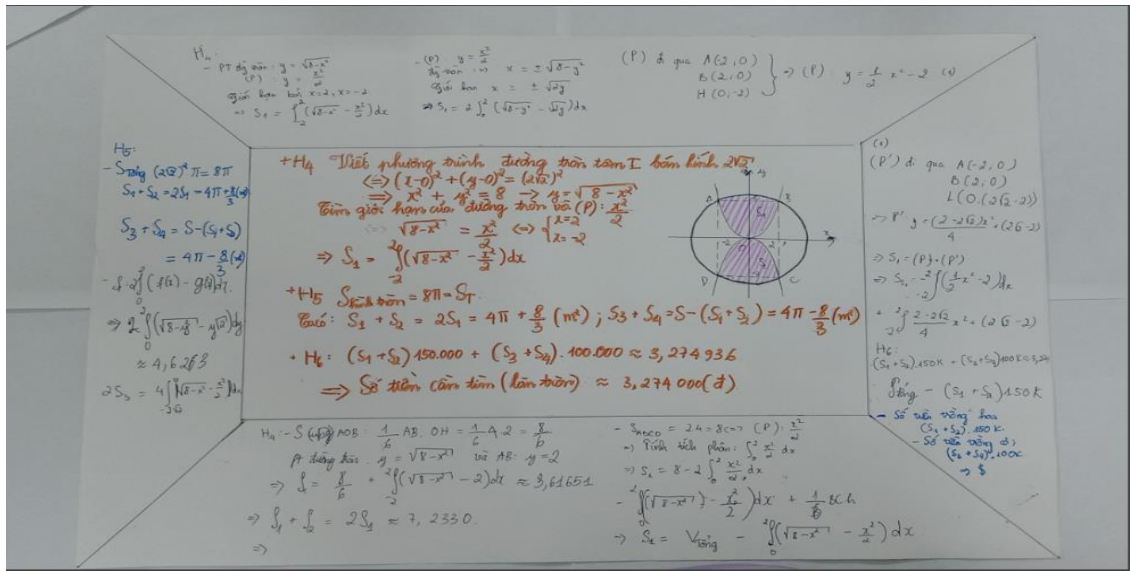 H4:
- PT đg tròn: y = √(8-x²)
(P) y = x²/2
giới hạn bởi x=2, x=-2
⇒ S1 = ∫_{-2}^{2} (√(8-x²) - x²/2) dx
- (P) y = x²/2
đg tròn ⇒ x = ± √(8-y²)
giới hạn x = ± √2y
⇒ S1 = 2∫_0^2 (√(8-y²) - √2y) dx
(P) đi qua A(-2,0)
B(2,0)
H(0,-2)
⇒ (P): y = 1/2 x² - 2 (1)
H5:
- S tròng (2√2)² π = 8π
S1 + S2 = 2S1 = 4π + 8/3 (m²)
S3 + S4 = S - (S1+S2)
= 4π - 8/3 (m²)
⇒ 2∫_0^2 (√(8-y²) - y√2) dy
≈ 4,6263
+ H4 Viết phương trình đường tròn tâm I bán kính 2√2
⇔ (x-0)² + (y-0)² = (2√2)²
⇒ x² + y² = 8 → y = √(8-x²)
Tìm giới hạn của đường tròn và (P): x²/2
⇔ √(8-x²) = x²/2 ⇔ { x=2
x=-2
⇒ S1 = ∫_{-2}^{2} (√(8-x²) - x²/2) dx
+ H5 S hình tròn = 8π = S_T
Có: S1 + S2 = 2S1 = 4π + 8/3 (m²); S3 + S4 = S - (S1+S2) = 4π - 8/3 (m²)
+ H6: (S1+S2) 150.000 + (S3+S4).100.000 ≈ 3,274936
⇒ Số tiền cần tìm (làm tròn) ≈ 3,274 000 (đ)
A
B
S1
-2
0
2
x
y
D
C
(2)
(P') đi qua A(-2,0)
B(2,0)
L(0,(2√2-2))
⇒ P' y = (2-2√2)x²/4 + (2√2-2)
⇒ S1 = (P) + (P')
⇒ S1 = -∫_{-2}^{2} (1/2 x² - 2) dx
+ ∫_{-2}^{2} (2-2√2)/4 x² + (2√2-2)
H6:
(S1+S2).150K + (S3+S4)100K ≈ 3,274
S tổng - (S1+S2)150K
- Số tiền trồng hoa
(S1+S2).150K
- Số tiền trồng cỏ
(S3+S4).100K
⇒ S
H4: - S AOB: 1/6 AB. OH = 1/6 4.2 = 8/6
pt đường tròn y = √(8-x²) và AB: y=2
⇒ S = 8/6 + ∫_{-2}^{2} (√(8-x²) - 2) dx ≈ 3,61651
⇒ S1 + S2 = 2S1 ≈ 7,2330.
⇒
- S_ABCD = 2.4 = 8 ⇒ (P): x²/2
⇒ Tính tích phân: ∫_0^2 x²/2 dx
⇒ S1 = 8 - 2∫_0^2 x²/2 dx
- ∫_0^2 (√(8-x²) - x²/2) dx + 1/6
⇒ S2 = V tổng - ∫_0^2 (√(8-x²) - x²/2) dx